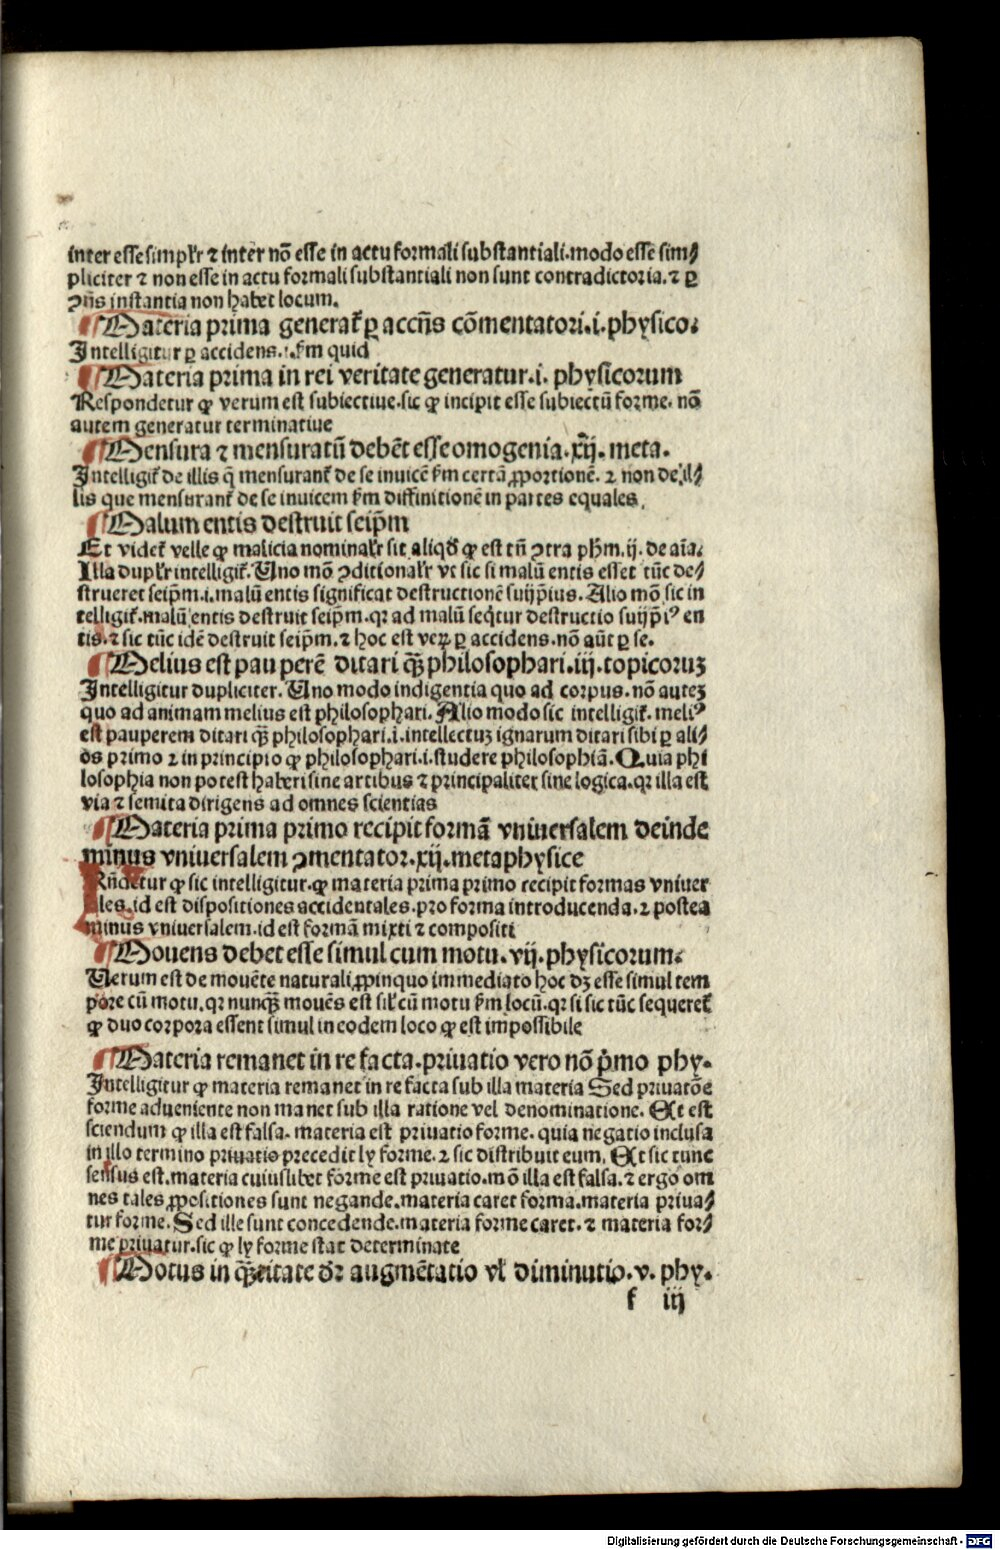 inter esse simplr̄ ⁊ inter nō esse in actu formali substantiali. modo esse sim⸗
pliciter ⁊ non esse in actu formali substantiali non sunt contradictoria. ⁊ ꝑ
ꝯn̄s instantia non habet locum.
¶ Materia prima generat᷑ ꝑ accn̄s cōmentatori. i. physico.
Intelligitur ꝑ accidens. .i. fm̄ quid
¶ Materia prima in rei veritate generatur. i. physicorum
Respondetur ꝙ verum est subiectiue. sic ꝙ incipit esse subiectū forme. nō
autem generatur terminatiue
¶ Mensura ⁊ mensuratū debēt esse omogenia. xij. meta.
Intelligit᷑ de illis q̄ mensurant᷑ de se inuicē fm̄ certā ꝓportionē. ⁊ non de il⸗
lis que mensurant᷑ de se inuicem fm̄ diffinitionē in partes equales.
¶ Malum entis destruit seip̄m
Et videt᷑ velle ꝙ malicia nominalr̄ sit aliqd̄ ꝙ est tn̄ ꝯtra phm̄. ij. de aīa.
Illa duplr̄ intelligit᷑. Uno mō ꝯditionalr̄ vt sic si malū entis esset tūc de⸗
strueret seip̄m. i. malū entis significat destructionē suijp̄ius. Alio mō sic in
telligit᷑. malū entis destruit seip̄m. qr ad malū seq̄tur destructio suijp̄iꝰ en
tis. ⁊ sic tūc idē destruit seip̄m. ⁊ hoc est veꝝ ꝑ accidens. nō aūt ꝑ se.
¶ Melius est pauperē ditari qꝫ̄ philosophari. iij. topicoruꝫ
Intelligitur dupliciter. Uno modo indigentia quo ad corpus. nō auteꝫ
quo ad animam melius est philosophari. Alio modo sic intelligit᷑. meliꝰ
est pauperem ditari qꝫ̄ philosophari. i. intellectuꝫ ignarum ditari sibi ꝑ ali⸗
ds̄ primo ⁊ in principio ꝙ philosophari. i. studere philosophiā. Quia phi
losophia non potest haberi sine artibus ⁊ principaliter sine logica. qr illa est
via ⁊ semita dirigens ad omnes scientias
¶ Materia prima primo recipit formā vniuersalem deinde
minus vniuersalem ꝯmentator. xij. metaphysice
Rn̄detur ꝙ sic intelligitur. ꝙ materia prima primo recipit formas vniuer
ales. id est dispositiones accidentales. pro forma introducenda. ⁊ postea
minus vniuersalem. id est formā mixti ⁊ compositi
¶ Mouens debet esse simul cum motu. vij. physicorum.
Uerum est de mouēte naturali ꝓpinquo immediato hoc dꝫ esse simul tem
pore cū motu. qr nunqꝫ̄ mouēs est sil᷑ cū motu fm̄ locū. qr si sic tūc sequeret᷑
ꝙ duo corpora essent simul in eodem loco ꝙ est impossibile
¶ Materia remanet in re facta. priuatio vero nō p̄mo phy.
Intelligitur ꝙ materia remanet in re facta sub illa materia Sed priuatōe
forme adueniente non manet sub illa ratione vel denominatione. Et est
sciendum ꝙ illa est falsa. materia est priuatio forme. quia negatio inclusa
in illo termino priuatis precedit ly forme. ⁊ sic distribuit eum. Et sic tunc
sensus est. materia cuiuslibet forme est priuatio. mō illa est falsa. ⁊ ergo om
nes tales ꝓpositiones sunt negande. materia caret forma. materia priua⸗
tur forme. Sed ille sunt concedende. materia forme caret. ⁊ materia for⸗
me priuatur. sic ꝙ ly forme stat determinate
¶ Motus in qꝫ̄titate dr̄ augmētatio vl᷑ diminutio. v. phy.
f iij
Digitalisierung gefördert durch die Deutsche Forschungsgemeinschaft - DFG